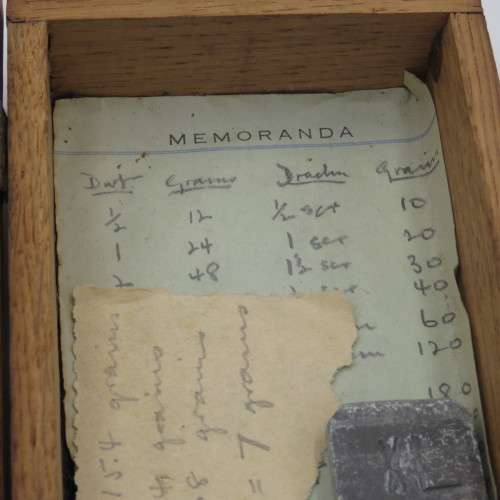 MEMORANDA
Dwt Grains Drachm Grains
½ 12 ½ scr 10
1 24 1 scr 20
48 1½ scr 30
scr 40
60
120
180
15.4 grains
grains
8 grains
= 7 grains